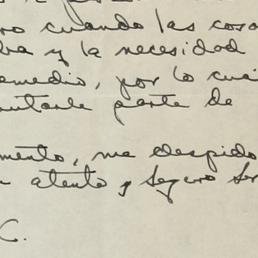 ro cuando las cosa
ba y la necesidad
emedio, por lo cua
ontarle parte de
mento, me despido
atento y seguro ser
C.